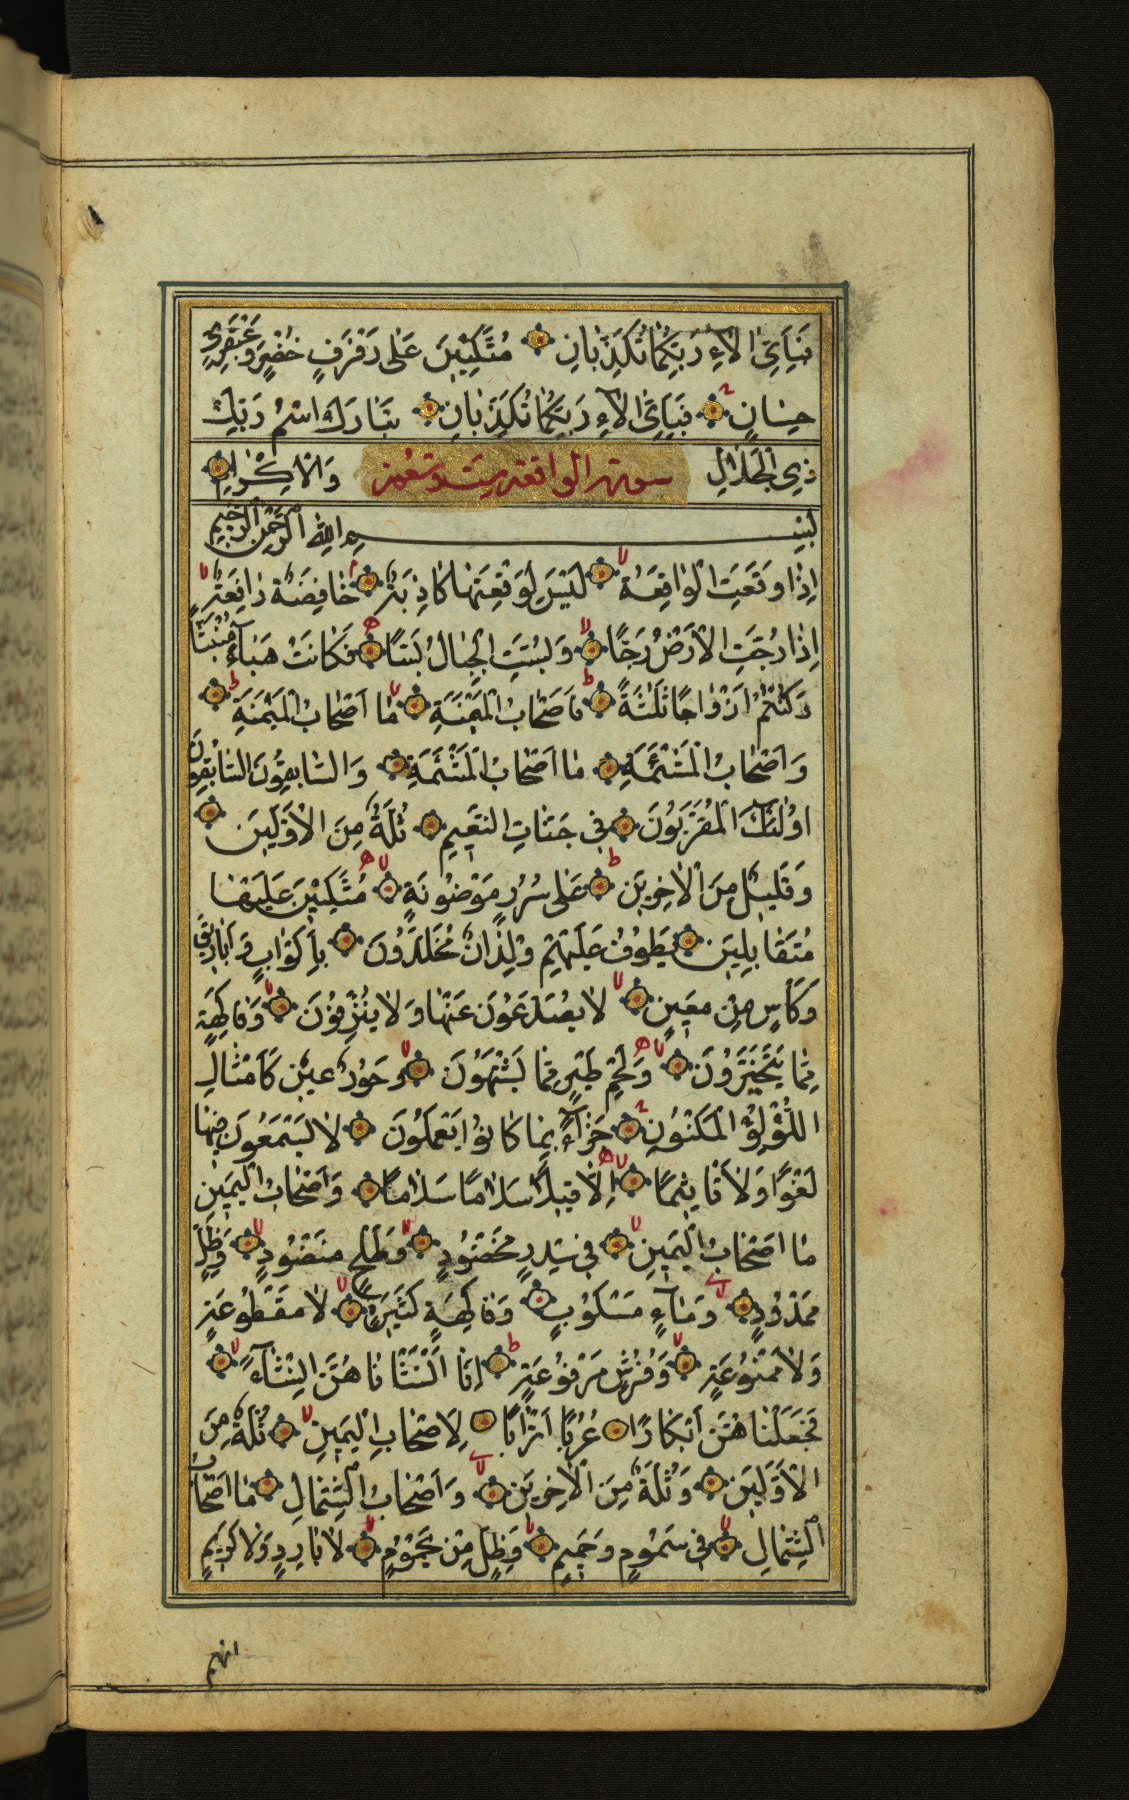 فَبِاَيِّ اٰلَآءِ رَبِّكُمَا تُكَذِّبَانِ مُتَّكِـِٔينَ عَلٰى رَفْرَفٍ خُضْرٍ وَعَبْقَرِيٍّ
حِسَانٍ فَبِاَيِّ اٰلَآءِ رَبِّكُمَا تُكَذِّبَانِ تَبَارَكَ اسْمُ رَبِّكَ
ذِي الْجَلَالِ سورة الواقعة ست وتسعون وَالْاِكْرَامِ
بِسْمِ اللهِ الرَّحْمٰنِ الرَّحِيمِ
اِذَا وَقَعَتِ الْوَاقِعَةُ لَيْسَ لِوَقْعَتِهَا كَاذِبَةٌ خَافِضَةٌ رَافِعَةٌ
اِذَا رُجَّتِ الْاَرْضُ رَجًّا وَبُسَّتِ الْجِبَالُ بَسًّا فَكَانَتْ هَبَآءً مُنْبَثًّا
وَكُنْتُمْ اَزْوَاجًا ثَلٰثَةً فَاَصْحَابُ الْمَيْمَنَةِ مَا اَصْحَابُ الْمَيْمَنَةِ
وَاَصْحَابُ الْمَشْئَمَةِ مَا اَصْحَابُ الْمَشْئَمَةِ وَالسَّابِقُونَ السَّابِقُونَ
اُولٰئِكَ الْمُقَرَّبُونَ فِي جَنَّاتِ النَّعِيمِ ثُلَّةٌ مِنَ الْاَوَّلِينَ
وَقَلِيلٌ مِنَ الْاٰخِرِينَ عَلٰى سُرُرٍ مَوْضُونَةٍ مُتَّكِئِينَ عَلَيْهَا
مُتَقَابِلِينَ يَطُوفُ عَلَيْهِمْ وِلْدَانٌ مُخَلَّدُونَ بِاَكْوَابٍ وَاَبَارِيقَ
وَكَاْسٍ مِنْ مَعِينٍ لَا يُصَدَّعُونَ عَنْهَا وَلَا يُنْزِفُونَ وَفَاكِهَةٍ
مِمَّا يَتَخَيَّرُونَ وَلَحْمِ طَيْرٍ مِمَّا يَشْتَهُونَ وَحُورٌ عِينٌ كَاَمْثَالِ
اللُّؤْلُؤِ الْمَكْنُونِ جَزَآءً بِمَا كَانُوا يَعْمَلُونَ لَا يَسْمَعُونَ فِيهَا
لَغْوًا وَلَا تَاْثِيمًا اِلَّا قِيلًا سَلَامًا سَلَامًا وَاَصْحَابُ الْيَمِينِ
مَا اَصْحَابُ الْيَمِينِ فِي سِدْرٍ مَخْضُودٍ وَطَلْحٍ مَنْضُودٍ وَظِلٍّ
مَمْدُودٍ وَمَآءٍ مَسْكُوبٍ وَفَاكِهَةٍ كَثِيرَةٍ لَا مَقْطُوعَةٍ
وَلَا مَمْنُوعَةٍ وَفُرُشٍ مَرْفُوعَةٍ اِنَّا اَنْشَأْنَاهُنَّ اِنْشَآءً
فَجَعَلْنَاهُنَّ اَبْكَارًا عُرُبًا اَتْرَابًا لِاَصْحَابِ الْيَمِينِ ثُلَّةٌ مِنَ
الْاَوَّلِينَ وَثُلَّةٌ مِنَ الْاٰخِرِينَ وَاَصْحَابُ الشِّمَالِ مَا اَصْحَابُ
الشِّمَالِ فِي سَمُومٍ وَحَمِيمٍ وَظِلٍّ مِنْ يَحْمُومٍ لَا بَارِدٍ وَلَا كَرِيمٍ
انهم